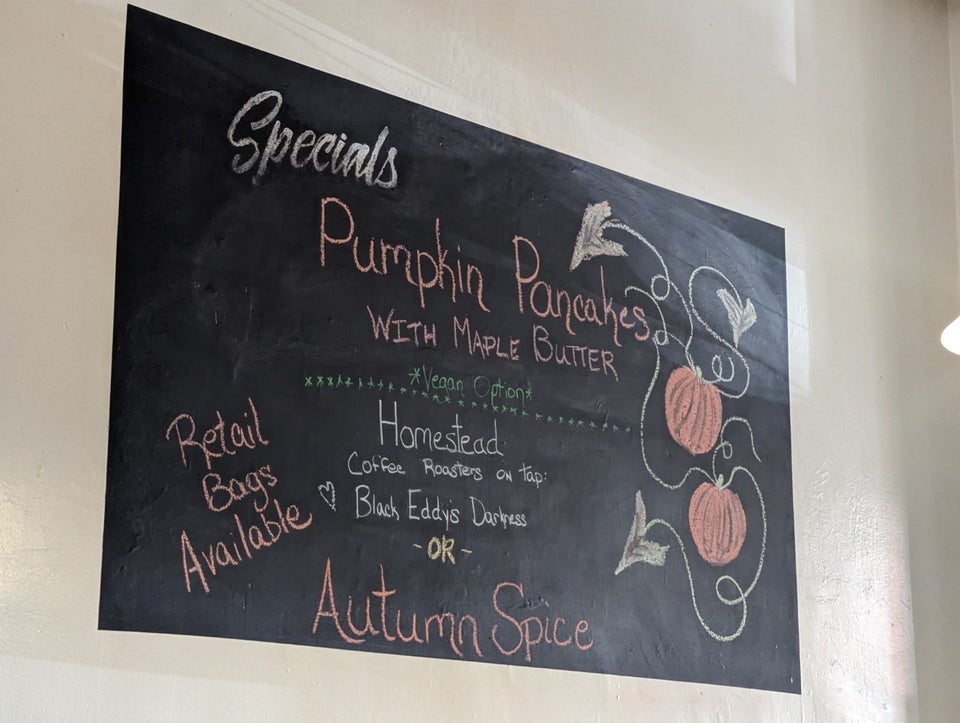 Specials
Pumpkin Pancakes
WITH MAPLE BUTTER
*Vegan Option*
Homestead
Coffee Roasters on tap:
Black Eddy's Darkness
- OR -
Autumn Spice
Retail
Bags
Available